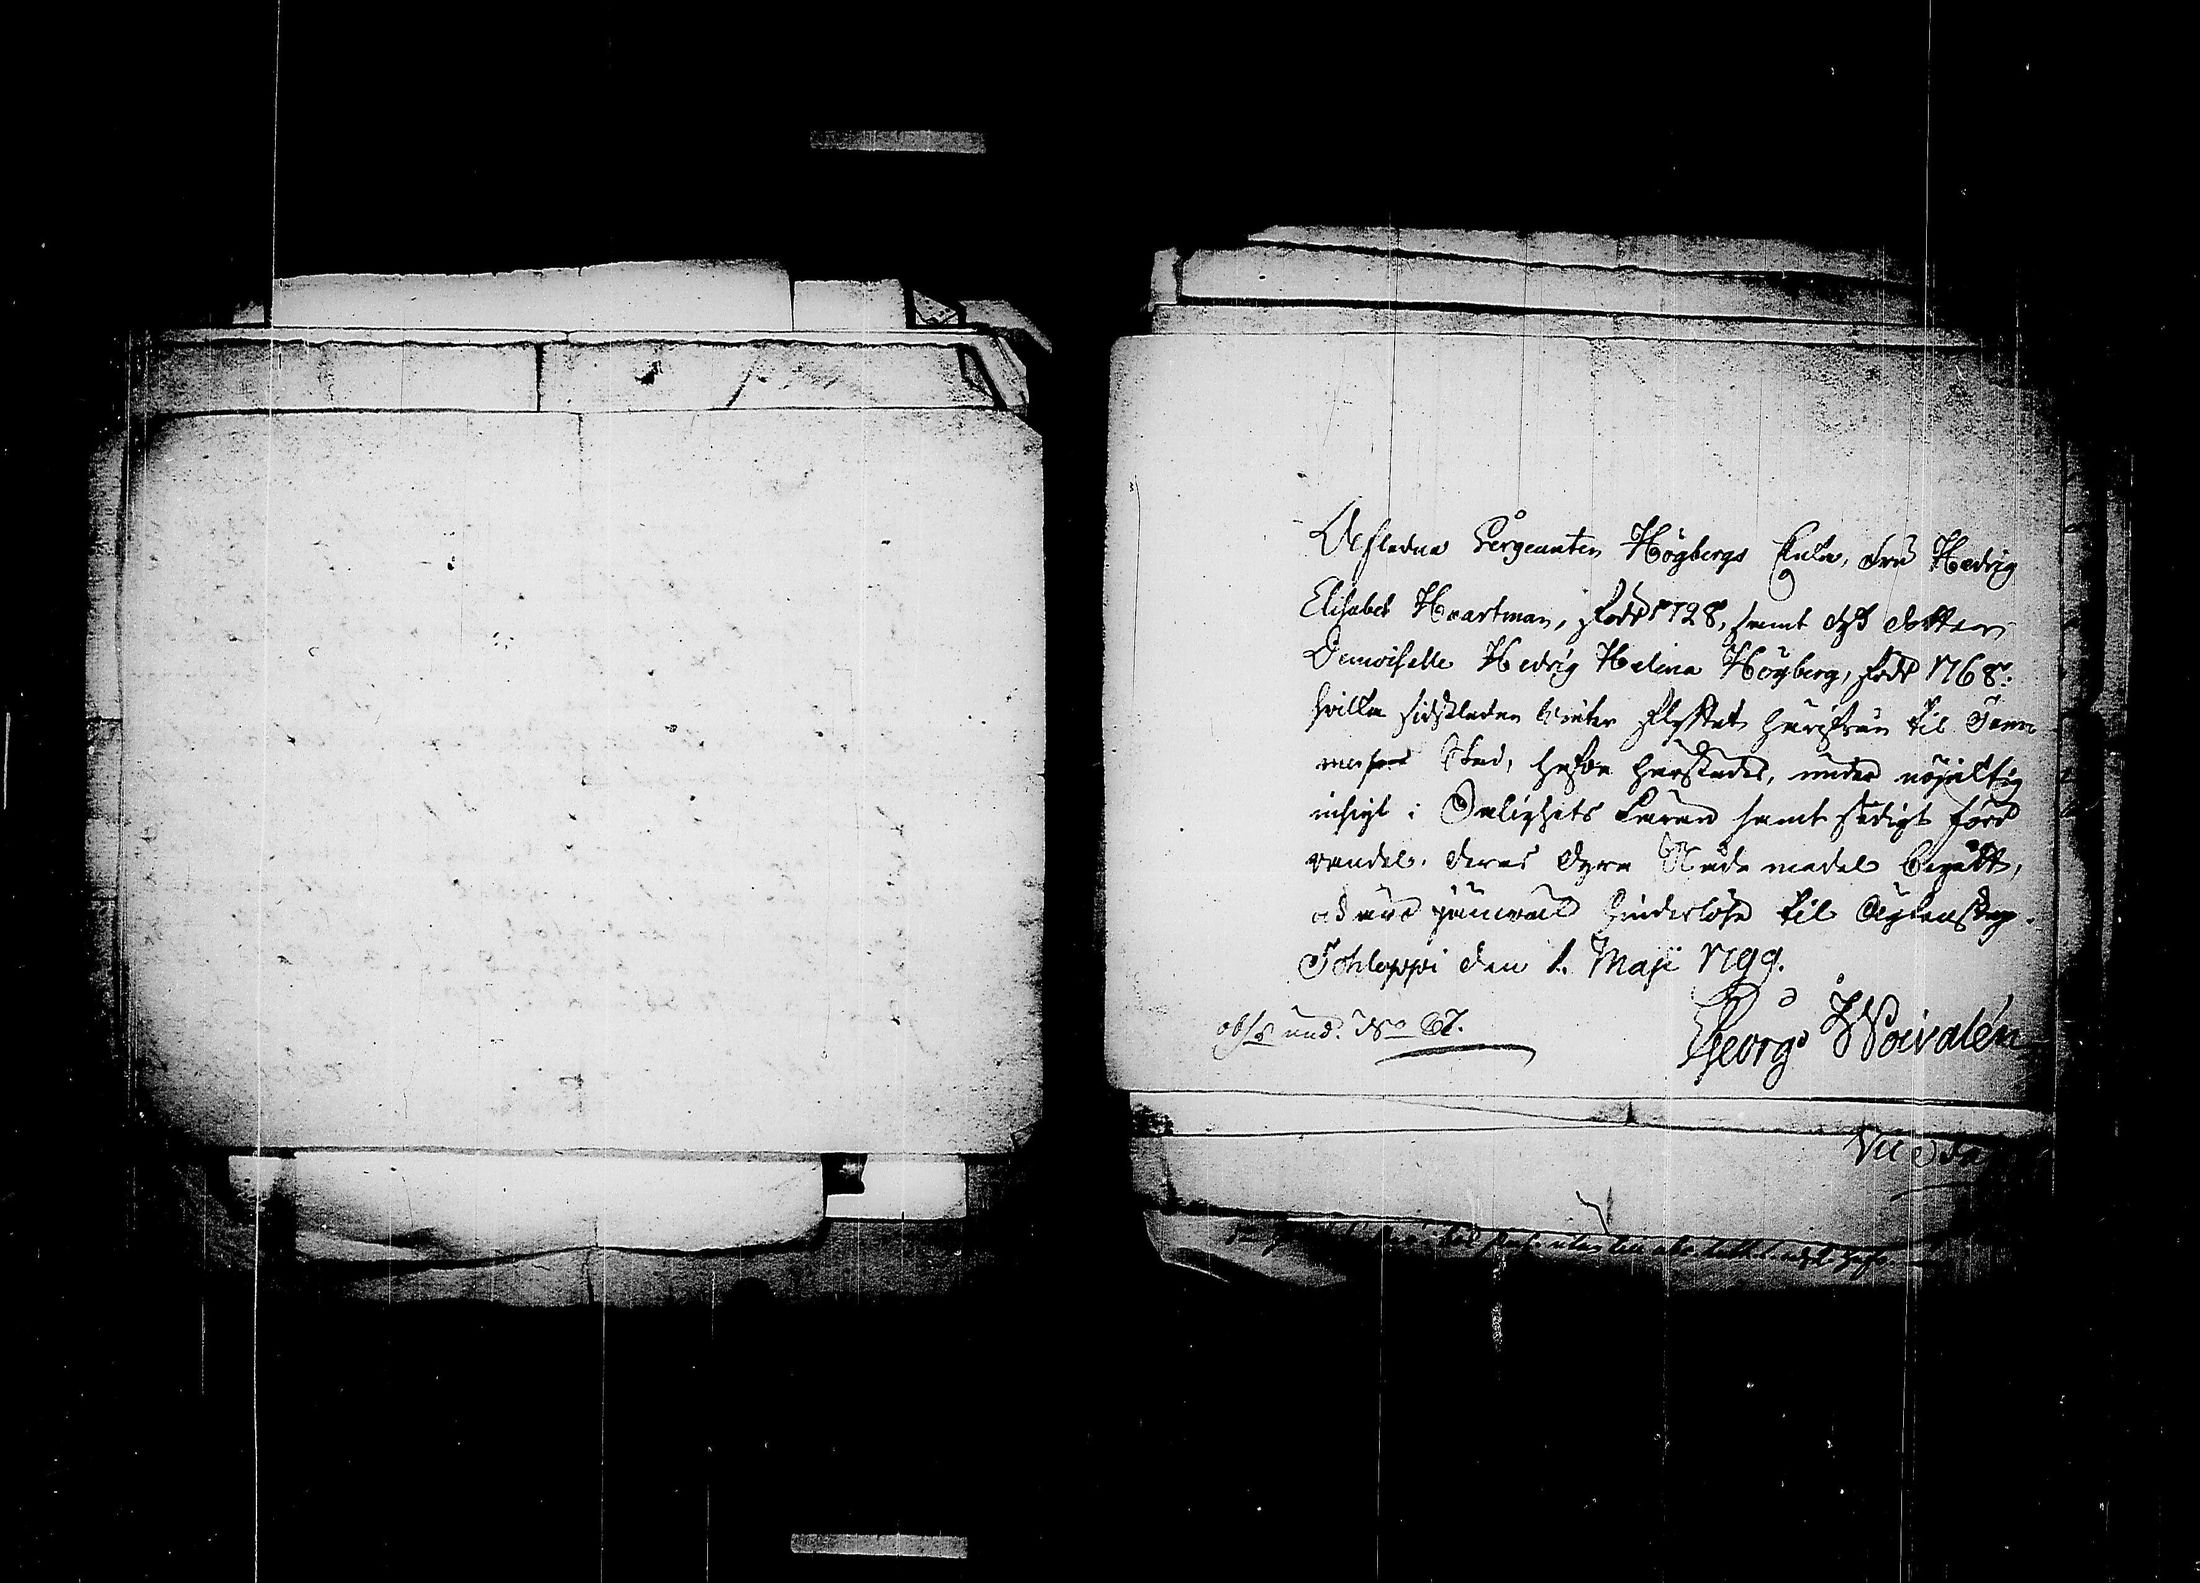 Afledna Sergeanten Högbergs Enka, Fru Hedvig
Elisabet Haartman, född 1728, samt des dotter
Demoiselle Hedvig Helena Högberg, född 1768:
hvilka sidstleden vinter flyttat härifrån til Tam-
merfors Stad, hafva härstädes, under nöjaktig
insigt i Salighets Läran samt sedigt förd
vandel, deras dyra Nåda medel begått,
och äro jämväl hinderlöse til Ägtenskap.
Tohloppi den 1. Maji 1799.
Georg Woivalén
obs und. No 67.